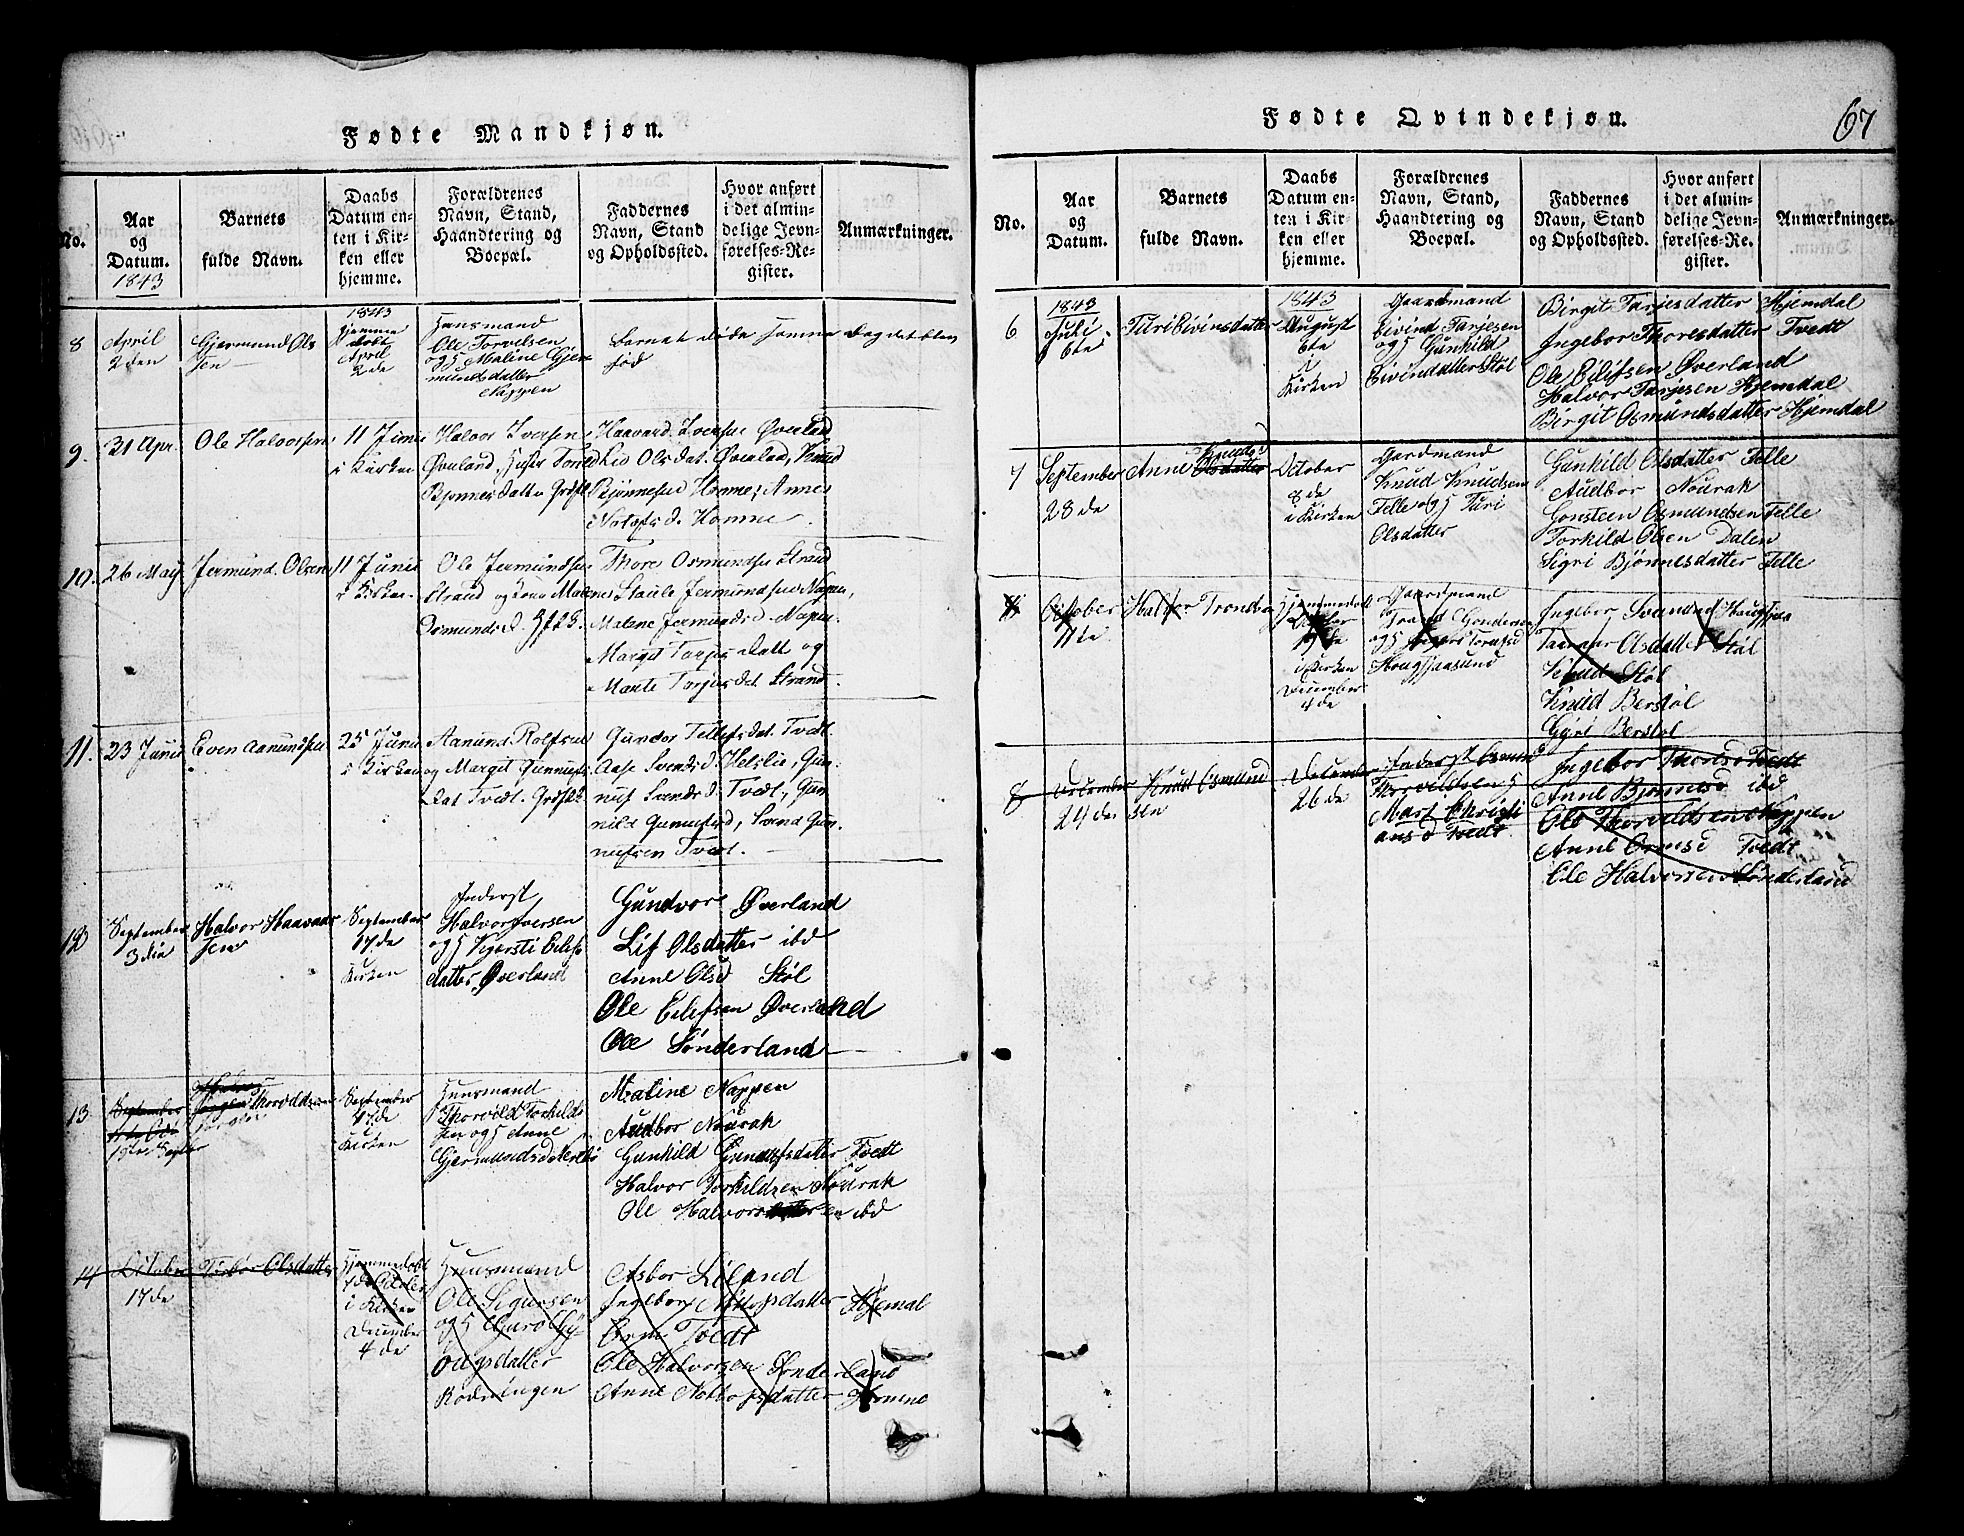 Fødte Mandkjøn.
No.
Aar og Datum.
1843
Barnets fulde Navn.
Daabs Datum enten i Kirken eller hjemme.
Forældrenes Navn, Stand, Haandtering og Boepæl.
Faddernes Navn, Stand og Opholdssted.
Hvor anført i det almindelige Jevnførelses-Register.
Anmærkninger.
8
April
2den
Gjermund Ols
sen
1843
Hjemme
døbt
April
2de
Huusmand
Ole Torvelsen
og Maline Gjer
mundsdatter
Nappen
Barnet døde samme Dag det blev
fød
9.
31 Apr.
Ole Halvorsen
11 Juni
i Kirken
Halvor Iversen
Øverland,
Bjørnesdatter
Haavard Iversen Øverland
Olsdat. Øverland, Knud
Bjørnesen Homme, Anne
Notofsd. Homme.
10.
26 May
Jermund Olsen
11 Junii
i Kirken
Ole Jermundsen
Strand og Kone Malene
Osmundsd.
Thore Osmundsen Strand
Jermundsen Napen,
Malene Jermundsd. Napen
Margit Tarjesdatt og
Marte Tarjesdat. Strand
11.
23 Junii
Even Aanundsen
25 Juni
i Kirken
Aanund Rolfsen
og Margit Gunnufs
dat Tvedt.
Gundor Tellefsdat. Tvedt
Aase Svendsd. Helslie, Gun
nuf Svends. Tvedt, Gun
nild Gunnufsd, Svend Gun
nufsen Tvedt.
12
September
3die
Halvor Haavor
sen
September
17de
Kirken
Inderst
Halvor Iversen
og Kjersti Eilefs
datter Øverland
Gundvor Øverland
Lif Olsdatter ibd
Anne Olsd Støl
Ole Eilefsen Øverland
Ole Sønderland
13
September
1ste Septbr
Jørgen Thorvoldsen
Jørgen
September
17de
i
Kirken
Huusmand
Thorvold Torkilds
sen og Anne
Gjermundsd
Maline Nappen
Audbor Nourak
Gunhild Gunnufsdatter Tvedt
Halvor Torkildsen Nourak
Ole Halvorsen ibd
14
October
17de
Torbor Olsdatter
Hjemmedøbt
17de October
i Kirken
December
4de
Huusmand
Ole Sigursen
og Guro Gy
datter
Rodningen
Asbor Liland
Ingebor Hjemal
Orm Tvedt
Ole Halvorsen Sønderland
Anne Homme
Fødte Qvindekjøn.
67
No.
Aar og Datum.
Barnets fulde Navn.
Daabs Datum enten i Kirken eller hjemme.
Forældrenes Navn, Stand, Haandtering og Boepæl.
Faddernes Navn, Stand og Opholdssted.
Hvor anført i det almindelige Jevnførelses-Register.
Anmærkninger.
6
1843
Juli
6te
Turi Eivinsdatter
1843
August
6te
i
Kirken
Gaardmand
Eivind Tarjesen
og Gunhild
Eivindatter Støl
Birgit Tarjesdatter Hjemdal
Ingebor Thoresdatter Tvedt
Ole Eilifsen Øverland
Halvor Tarjesen Hjemdal
Birgit Osmundsdatter Hjemdal
7
September
28de
Anne Olsdatter
Knudsd
October
8de
i Kirken
Gardmand
Knud Knudsen
Felle og Turi
Olsdatter
Gunhild Olsdatter Felle
Audbor Nourak
Gonsteen Osmundsen Felle
Torkild Olsen Dalen
Sigri Bjønnesdatter Felle
8
October
11te
Halvor Trondsen
Hjemmedøbt
October
i Kirken
December
4de
Gaardmand
Trond Gondersen
og
Ingebor Svenund
Olsdatter Støl
Knud Støl
Knud Berstøl
Gyri Berstøl
8
December
24de
Knud Osmund
sen
December
26de
Inderst Osmund
Thorvildsen og
Mart Christi
ansd Tvedt
Ingebor Thorisd Tvedt
Anne Bjønnesd ibd
Ole Thorvildsen Nappen
Anne Ormsd Tvedt
Ole Halvorsen Sønderland